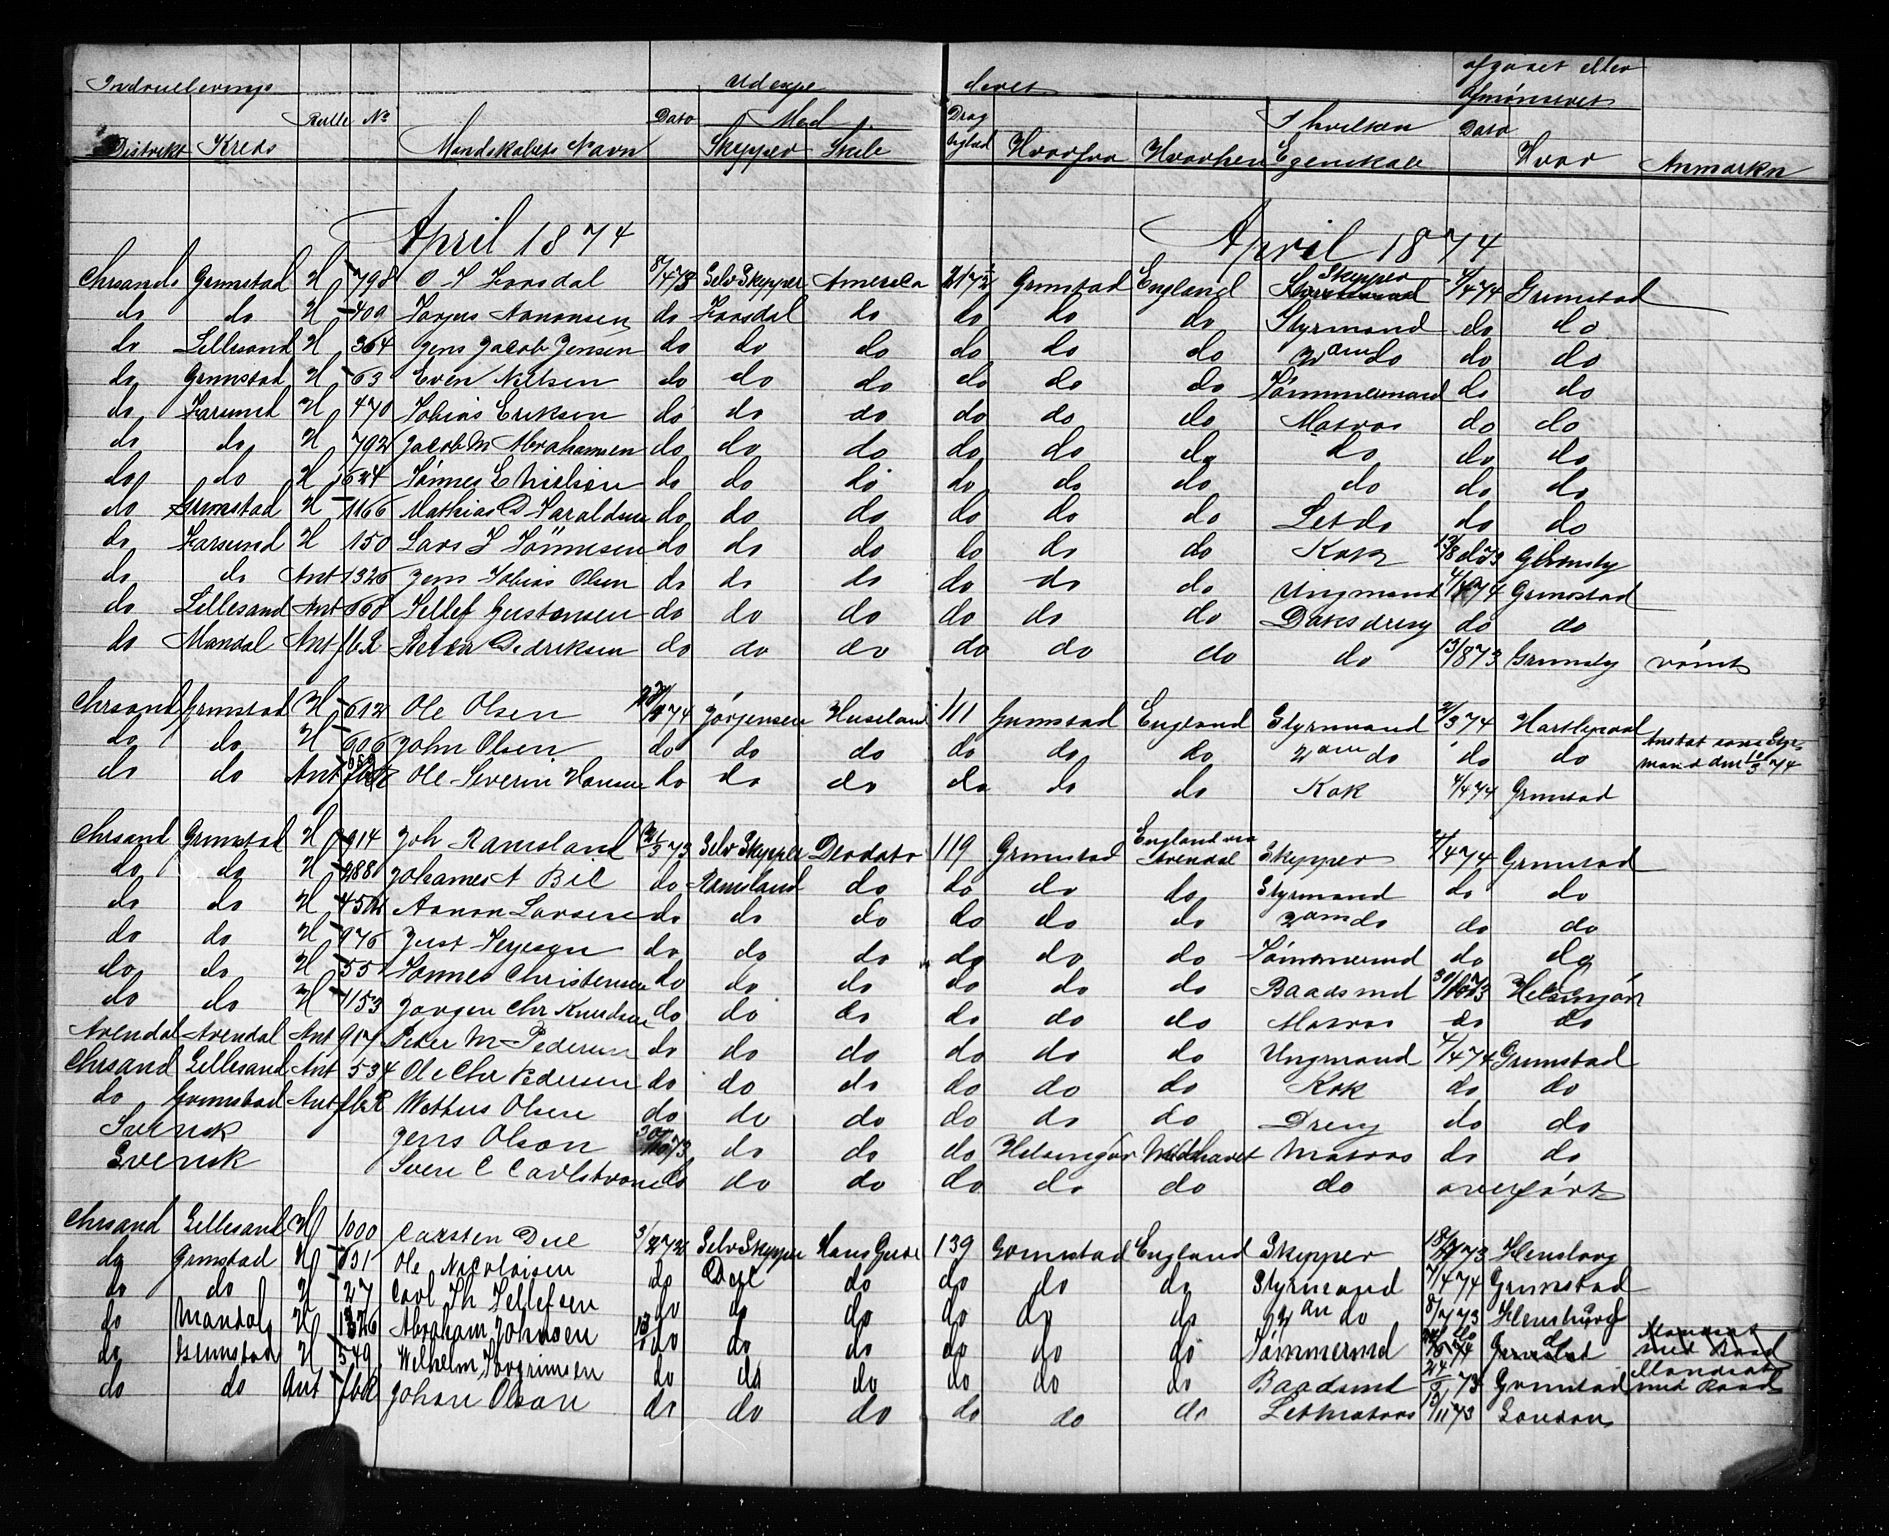 Indrullerings Udexpe deret afgaaet eller
Afmønsteret
Rulle No Dato Med Drag I hvilken Dato
Distrikt Kreds Mandskabets Navn Skipper Skib Hvorfra Hvorhen Egenskab Hvor Anmærkn
April 1874 April 1874
Chrsand Grmstad H 798 O Skipper 8/4 73 Selv Skipper America 217 Grmstad England Skipper 4/4 74 Grimstad
do do H 409 Aanonsen do do do do do Styrmand do do
do Lillesand H 364 Jens Jacob Jensen do do do do do do 2den do do do
do Grmstad H 63 Even Nielsen do do do do do do Tømmermand do do
do Farsund H 470 Tobias Eriksen do do do do do do Matros do do
do do H 792 Jacob M Abrahamsen do do do do do do do do do
do do H 624 Tønnes E Nielsen do do do do do do do do do
do Grimstad H 1166 Mathias D Taraldsen do do do do do do Let do do do
do Farsund H 150 Lars L Tønnesen do do do do do do Kok 13/8 73 Grimsby
do do Ant 1326 Jens Tobias Olsen do do do do do do Ungmand 4/4 74 Grimstad
do Lillesand Ant 660 Tellef Gustavsen do do do do do do Dæksdreng do do
do Mandal Ant fbR Peter Dedriksen do do do do do do do 13/8 73 Grimsby rømt
Chrsand Grmstad H 612 Ole Olsen 74 Jørgensen Huseland 111 Grmstad England Styrmand 2/3 74 Hartlepool
do do H 606 John Olsen do do do do do do 2den do do do Antat som Styr-
mand den 10/3 74
do do Ant Ole Severin Hansen do do do do do do Kok 4/4 74 Grmstad
Chrsand Grmstad H 914 Joh Ramsland 73 Selv Skipper Deodata 119 Grmstad England via Arendal Skipper 4/4 74 Grmstad
do do H 288 Johannes A Bie do Ramsland do do do do Styrmand do do
do do H Aanon Larsen do do do do do do 2den do do do
do do H 976 Just Terjesen do do do do do do Tømmermd do do
do do H 55 Tønnes Christensen do do do do do do Baadsmd 30/10 73 Helsingør
do do H 1153 Jørgen Chr Knudsen do do do do do do Matros do do
Arendal Arendal Ant 917 Peter M Pedersen do do do do do do Ungmand 4/4 74 Grmstad
Chrsand Lillesand Ant 534 Ole Chr Pedersen do do do do do do Kok do do
do Grmstad Ant fbR Mathias Olsen do do do do do do Dreng do do
Svensk Jens Olson 30/10 73 do do do Helsingør Middhavet Matros do do
Svensk Sven C Carlstrom do do do do do do do overført
Chrsand Lillesand H 1000 Carsten Due 3/2 72 Selv Skipper Hans Gude 139 Grmstad England Skipper 73 Flensborg
do Grmstad H 631 Ole Nicolaisen do Due do do do do Styrmand 7/4 74 Grmstad
do do H 27 Carl Th Tellefsen do do do do do do 2den do 8/7 73 Flensburg
do Mandal H 1326 Abraham Johnsen do do do do do do Tømmermd
do Grimstad H 549 Wilhelm Torgrimsen do do do do do do Baadsmd 73 Grmstad
do do Ant fbR Johan Olson do do do do do do Letmatros 13/11 73 London